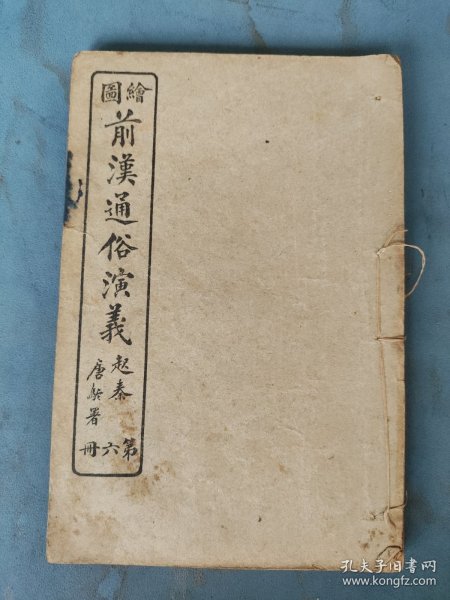 繪圖
前漢通俗演義
起秦
唐駝署
第六冊
孔夫子旧书网
www.kongfz.com